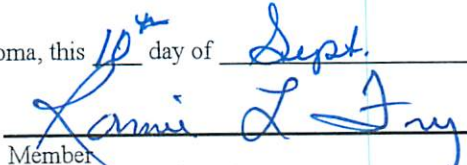 oma, this 10th day of Sept.
Kamie L Fry
Member